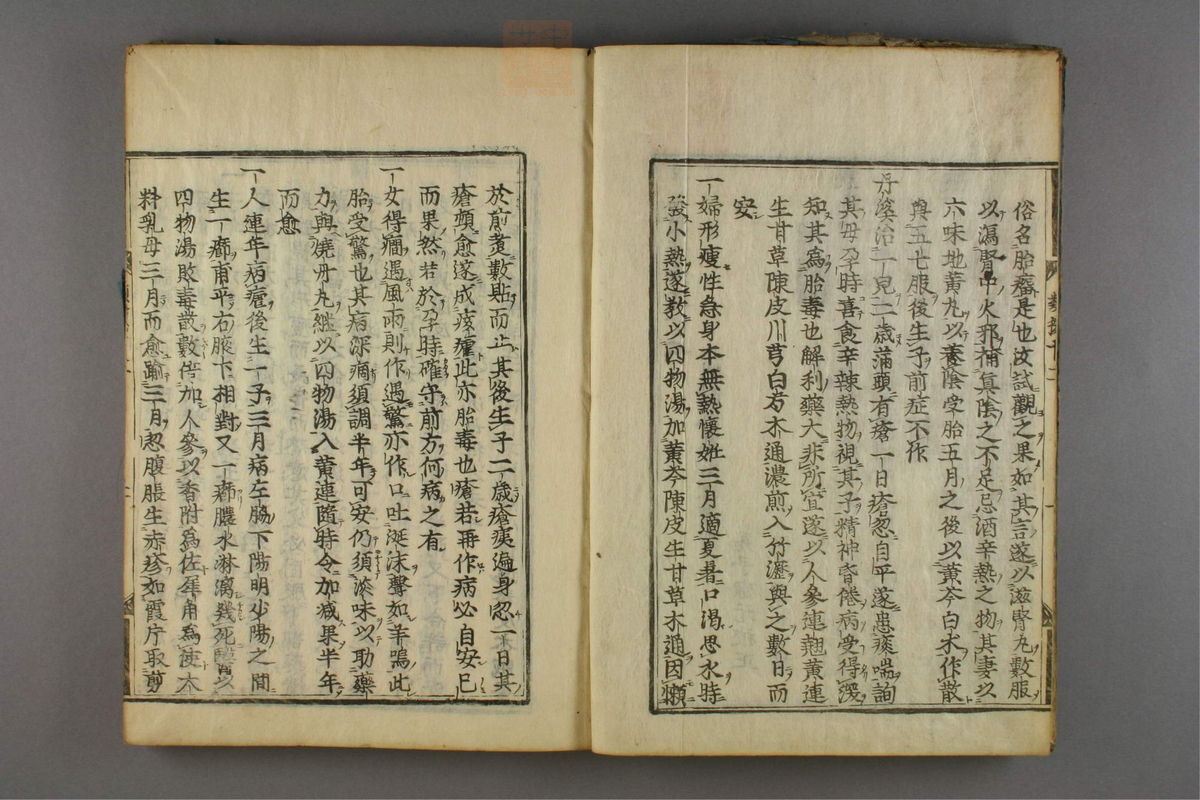 俗名胎瘤是也汝試觀之果如其言遂以滋腎丸數服
以瀉腎中火邪補眞陰之不足忌酒辛熱之物其妻以
六味地黄丸以養陰受胎五月之後以黄芩白朮作散
與五七服後生子前症不作
丹溪治一兒二歲滿頭有瘡一日瘡忽自平遂患痰喘詢
其母孕時喜食辛辣熱物視其子精神昏倦病受得深
知其爲胎毒也解利藥大非所宜遂以人參連翹黄連
生甘草陳皮川芎白芍木通濃煎入竹瀝與之數日而
安
一婦形瘦性急身本無熱懷姙三月適夏暑口渇思水時
發小熱遂教以四物湯加黄芩陳皮生甘草木通因懶
於煎煮數貼而止其後生子二歲瘡痍遍身忽一日其
瘡頓愈遂成痎瘧此亦胎毒也瘡若再作病必自安已
而果然若於孕時確守前方何病之有
一女得癎遇風雨則作遇驚亦作口吐涎沫聲如羊鳴此
胎受驚也其病深痼須調半年可安仍須淡味以助藥
力與燒丹丸繼以四物湯入黄連隨時令加减果半年
而愈
一人連年病瘧後生一子三月病左脇下陽明少陽之間
生一癤甫平右腋下相對又一癤膿水淋瀉幾死醫以
四物湯敗毒散數倍加人參以香附爲佐犀角爲使大
料乳母三月而愈踰三月忽腹脹生赤疹如霞片取剪